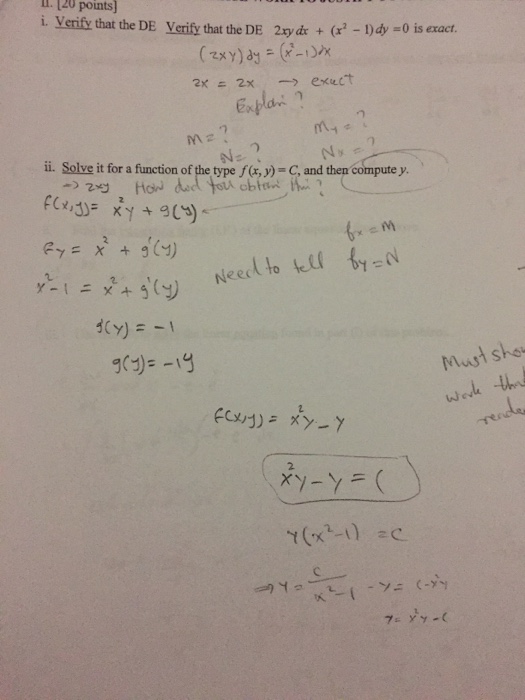 II. [20 points]
i. Verify that the DE Verify that the DE 2xy dx + (x² − 1) dy =0 is exact.
(2xy)dy = (x²-1)dx
2x = 2x → exact
Explain?
M=? My=?
N=? Nx=?
ii. Solve it for a function of the type f(x, y) = C, and then compute y.
→ 2xy How did you obtain this?
f(x,y)= x²y + g(y)
fx=M
fy= x² + g'(y)
Need to tell fy=N
x²-1 = x² + g'(y)
g'(y) = -1
g(y)= -1y
Must show
work that
f(x,y) = x²y-y
x²y-y=C
y(x²-1) =C
⇒ y = C/x²-1 -y= C-x²y
y= x²y-C